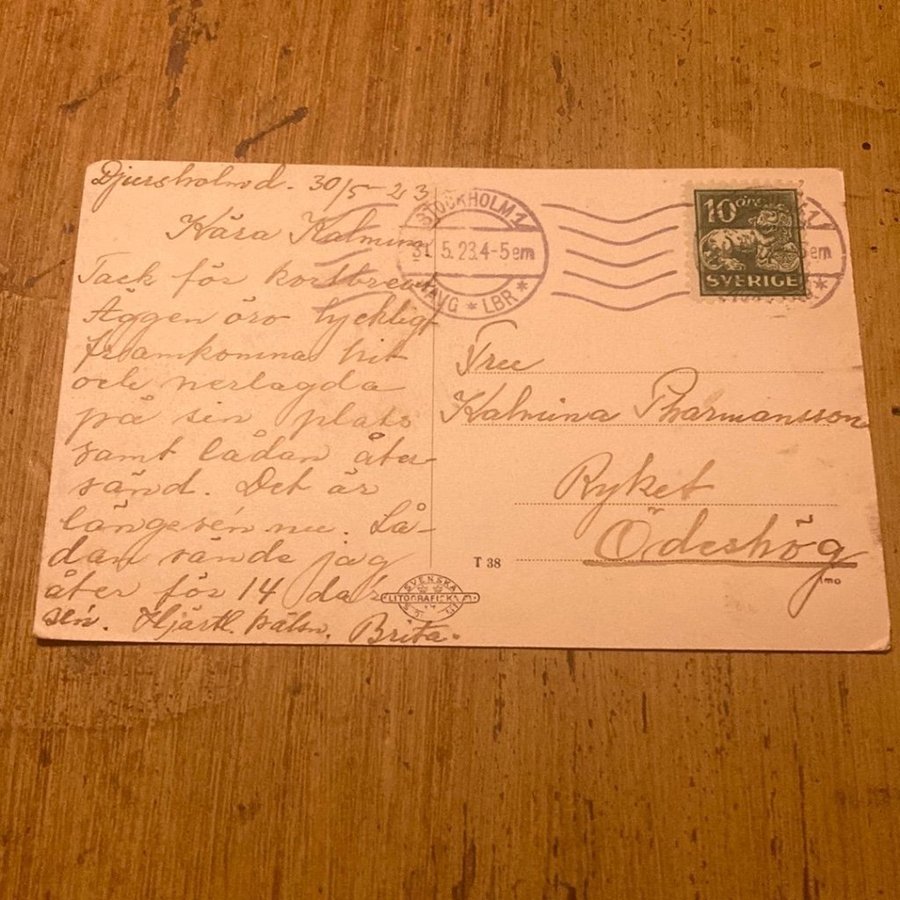 Djursholm d. 30/5-23
Kära Kalmina
Tack för kortbrevet
Äggen äro lyckligt
framkomna hit
och nerlagda
på sin plats
samt lådan åter
sänd. Det är
längesén nu. Lå-
dan sände jag
åter för 14 dar
sén. Hjärtl. hälsn. Brita.
STOCKHOLM 1
31.5.23.4-5em
AVG * LBR *
10 öre
SVERIGE
Kalmina
Ryket
Ödeshög
T 38
SVENSKA
LITOGRAFISKA
imo